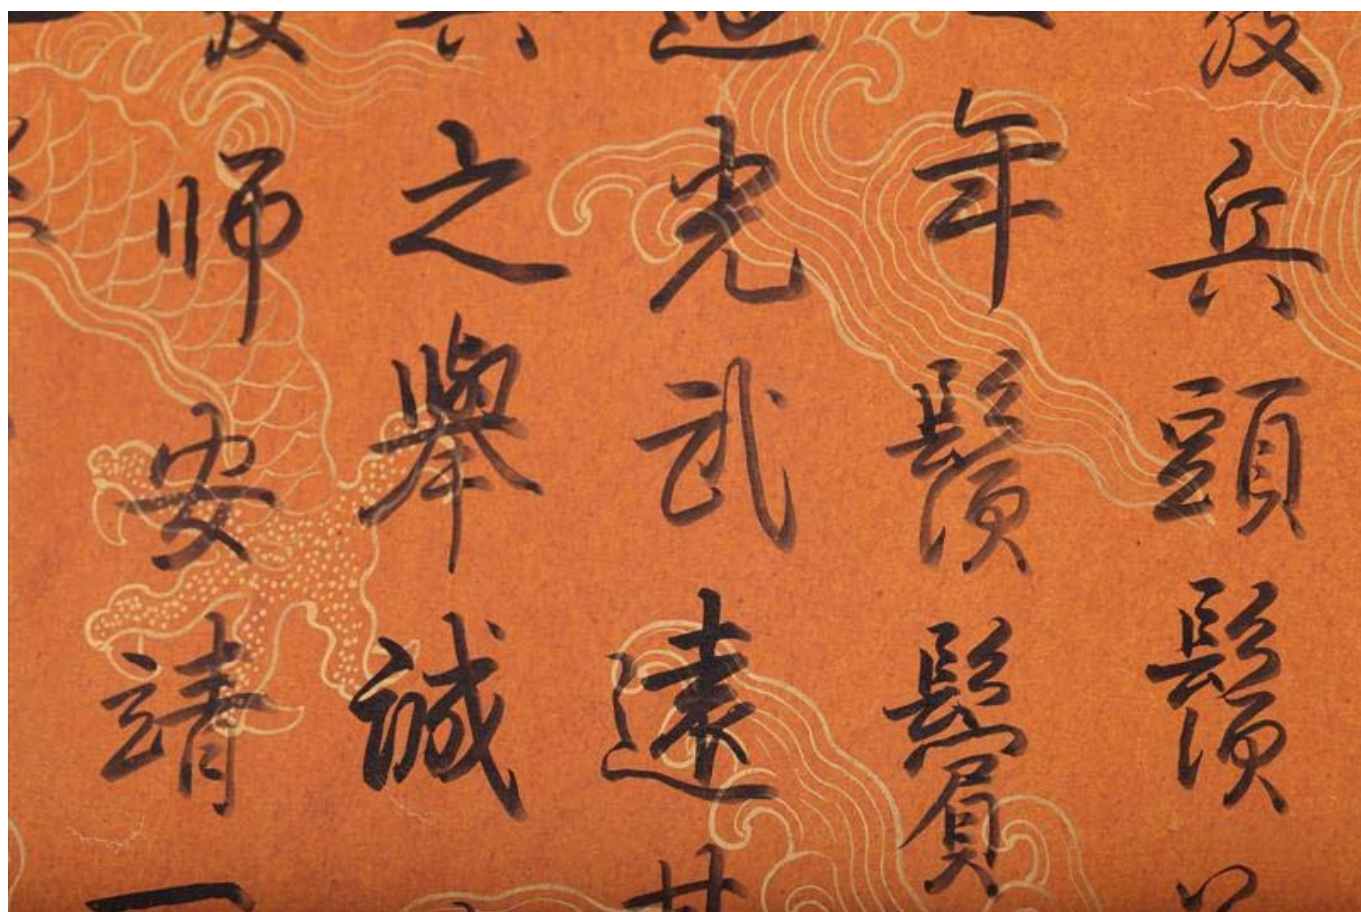 兵頭鬚
年鬚鬢
光武遠
之舉誠
師安靖